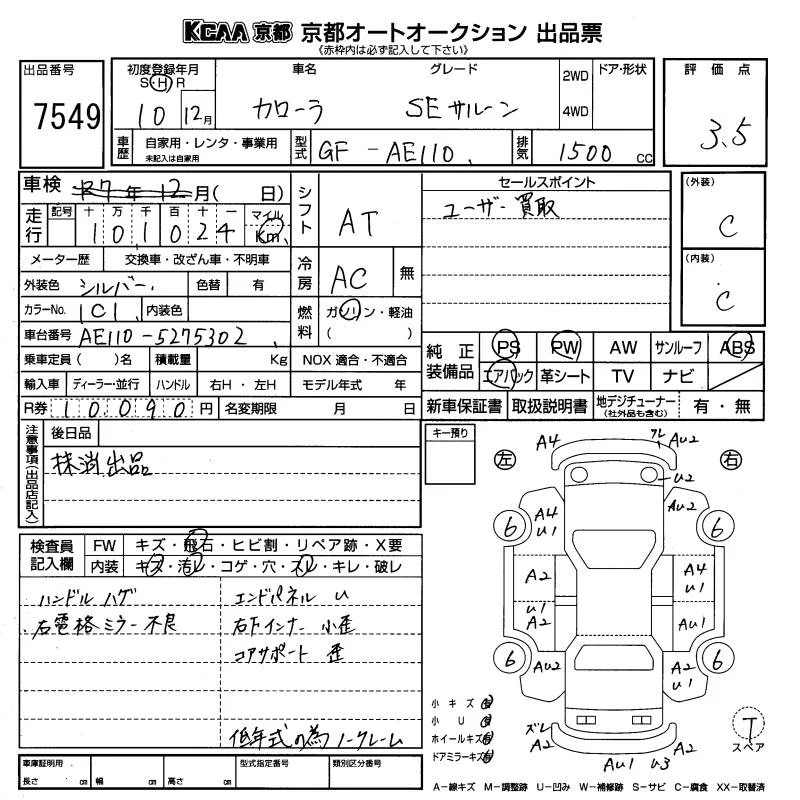 KCAA 京都 京都オートオークション 出品票
《赤枠内は必ず記入して下さい》
出品番号
7549
初度登録年月
S H R
10 12月
車名
カローラ
グレード
SEサルーン
2WD
4WD
ドア・形状
評価点
3.5
車歴
自家用・レンタ・事業用
未記入は自家用
型式
GF - AE110
排気
1500 cc
車検 R7年12月( 日)
走行
記号 十 万 千 百 十 一 マイル
101024 Km
メーター歴 交換車・改ざん車・不明車
外装色 シルバー 色替 有
カラーNo. 1C1 内装色
車台番号 AE110-5275302
乗車定員( )名 積載量 Kg
輸入車 ディーラー・並行 ハンドル 右H・左H
R券 10,090円 名変期限 月 日
シフト AT
冷房 AC 無
燃料 ガソリン・軽油
( )
NOX 適合・不適合
モデル年式 年
セールスポイント
ユーザー買取
(外装)
C
(内装)
C
純正装備品
PS PW AW サンルーフ ABS
エアバック 革シート TV ナビ
新車保証書 取扱説明書 地デジチューナー(社外品も含む) 有・無
注意事項(出品店記入)
後日品
抹消出品
キー預り
検査員記入欄
FW キズ・飛石・ヒビ割・リペア跡・X要
内装 キズ・汚レ・コゲ・穴・スレ・キレ・破レ
ハンドル ハゲ
右電格ミラー不良
エンドパネル U
右下インナー 小歪
コアサポート 歪
低年式の為ノークレーム
左
右
A4
フレ AU2
U2
AU2
A4
U1
6
6
A2
A4
U1
U1
A2
AU1
6
AU2
A2
U1
6
ズレ
A2
AU1 U3 A2
小キズ
小U
ホイールキズ
ドアミラーキズ
T
スペア
車庫証明用
長さ cm 幅 cm 高さ cm
型式指定番号
類別区分番号
A-線キズ M-調整跡 U-凹み W-補修跡 S-サビ C-腐食 XX-取替済